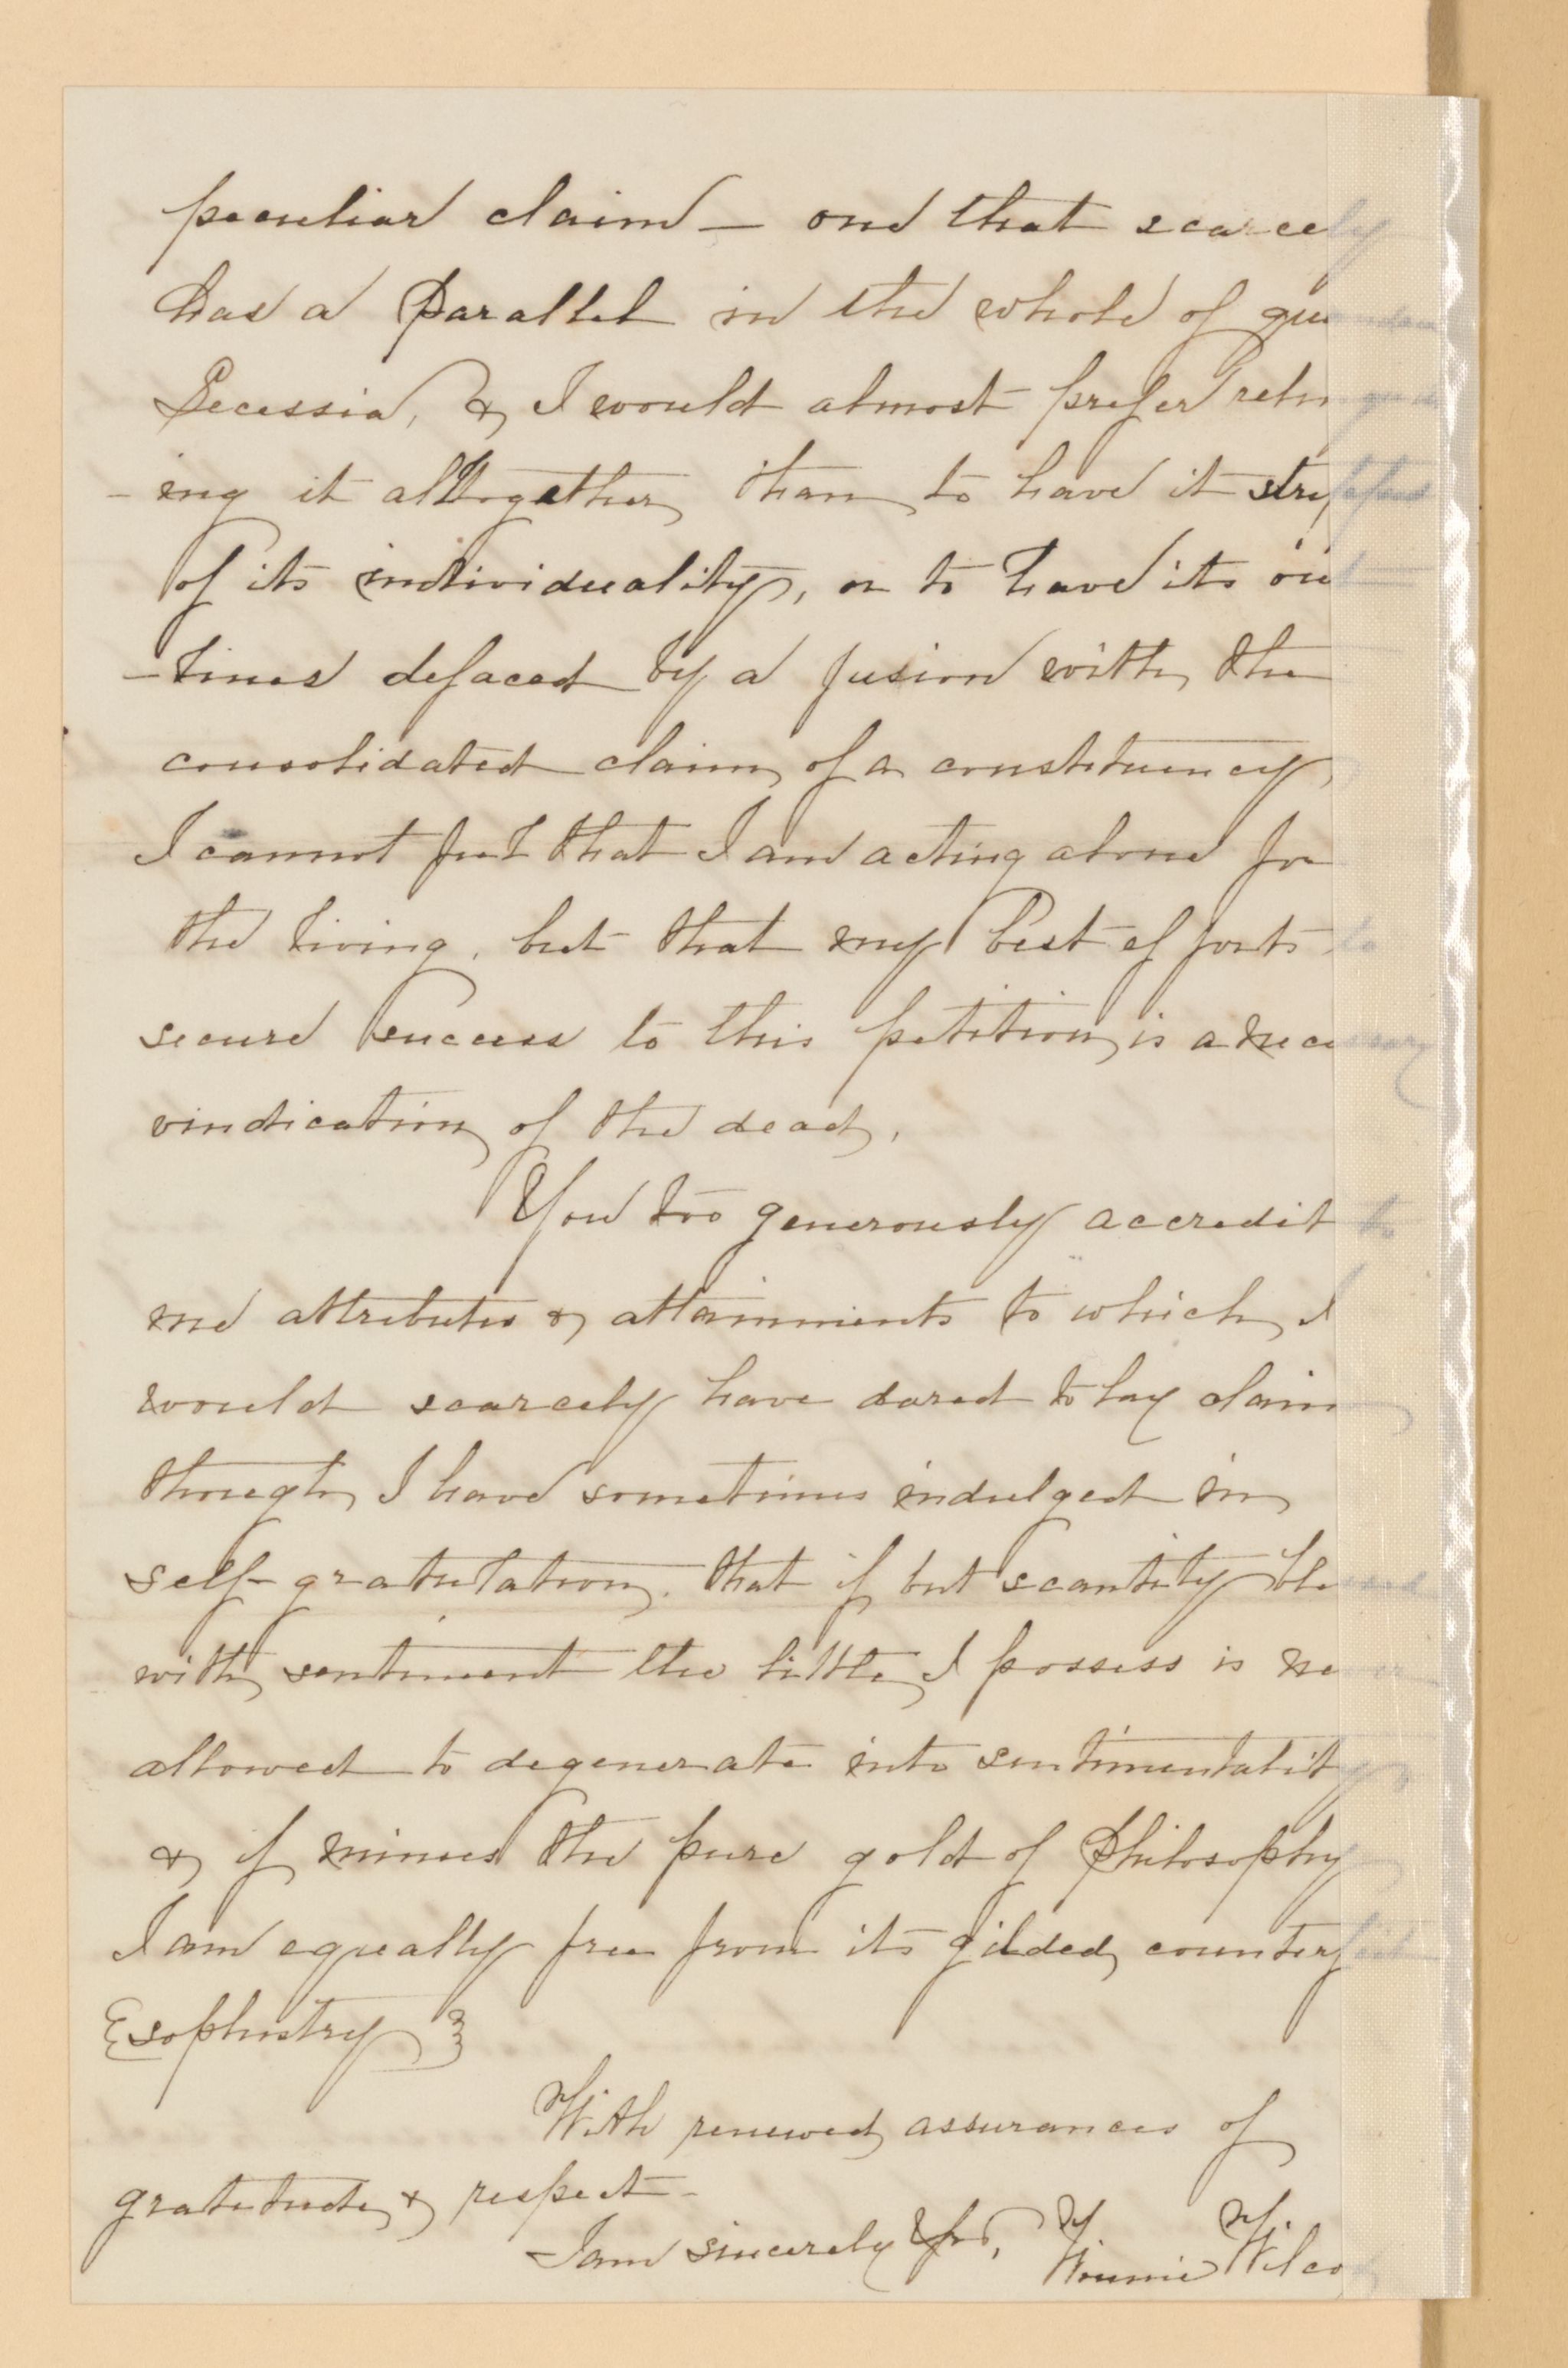 peculiar claim — one that scarcely
has a Parallel in the whole of quondam
Secessia, & I would almost prefer relinquish
- ing it alltogether than to have it stripped
of its individuality, or to have its out
- lines defaced by a fusion with the
consolidated claim of a constituency,
I cannot feel that I am acting alone for
the living, but that my best efforts to
secure success to this petition is a necessary
vindication of the dead,
You too generously accredit to
me attributes & attainments to which I
would scarcely have dared to lay claim
though I have sometimes indulged in
self-gratulation, that if but scantily blessed
with sentiment the little I possess is never
allowed to degenerate into sentimentality,
& if minus the pure gold of Philosophy
I am equally free from its gilded counterfeit
{sophistry}
With renewed assurances of
gratitude & respect -
I am sincerely Yrs, Winnie Wilcox